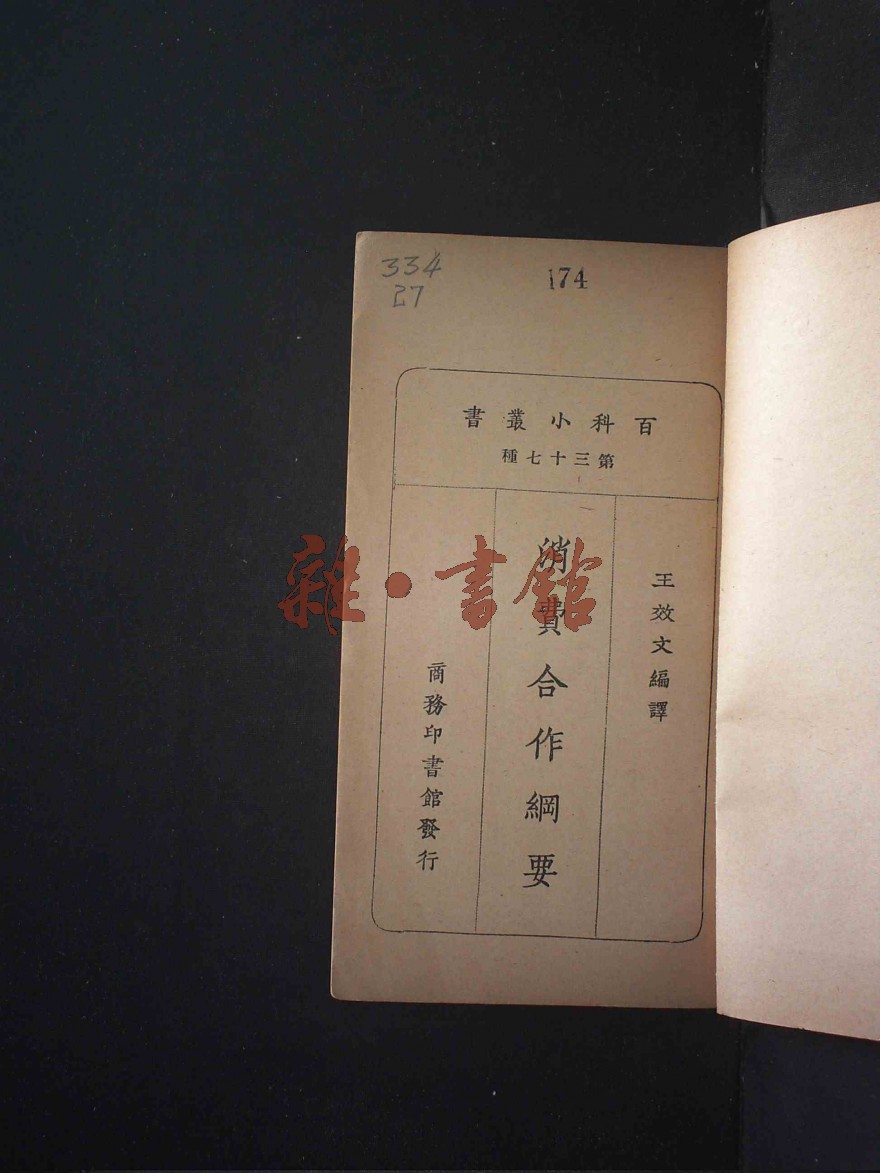 334
27
174
百科小叢書
第三十七種
王效文編譯
消費合作綱要
商務印書館發行
雜·書館